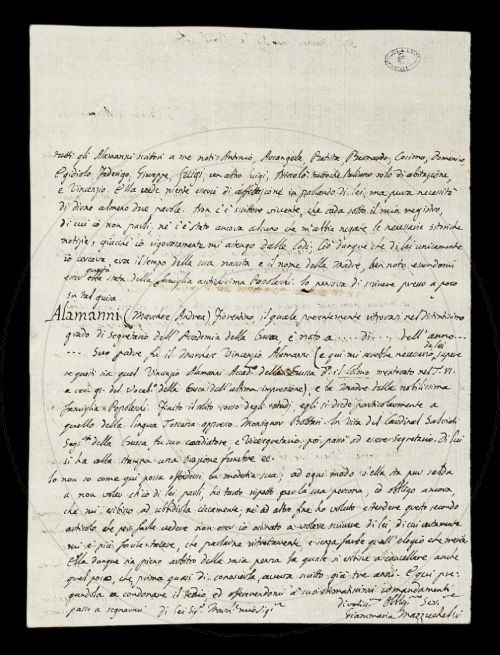 tutti gli Alamanni scittori a me noti: Antonio, Arcangela, Batista, Bernardo, Cosimo, Domenico
Egidiolo, Federigo, Giuseppe, Luigi, un altro Luigi, Niccolò naturale italiano solo di abitazione,
e Vincenzio. Ella vede niente esservi di affettazione in parlando di lei, ma pura necessità
di dirne almeno due parole. Non c'è scrittore vivente, che cada sotto il mio registro,
di cui io non parli, nè c'è stato ancora alcuno che m'abbia negate le necessarie istoriche
notizie, giacchè io vigorosamente mi astengo dalle lodi. Ciò dunque che da lei unicamente
io cercava, era il tempo della sua nascita e il nome della Madre, ben noto essendomi
esser questa stata della famiglia antichissima Popoleschi. Io pensava di scrivere presso a poco
in tal guisa
Alamanni (Marchese Andrea) Fiorentino il quale presentemente ritrovasi nel distintissimo
grado di Segretario dell'Accademia della Crusca, è nato a ..... di ... dell'anno
.... Suo padre fu il Marchese Vincenzio Alamanni (e qui mi sarebbe necessario sapere da lei
se questi sia quel Vincenzio Alamanni Accad.o della Crusca
del Vocab.o della Crusca dell'ultima impressione), e la Madre della nobilissima
famiglia Popoleschi. Fatto il solito corso degli studj, egli si diede particolarmente a
quello della lingua Toscana appresso Monsignor Bottari. In Vita del Cardinal Salviati
Seg.rio della Crusca fu suo coadiutore e Vicesegretario, poi passò ad essere Segretario. Di lui
si ha alla stampa una orazione funebre ec.
Io non so come qui possa offendersi la modestia sua; ad ogni modo s'ella sta pur salda
a non voler ch'io di lei parli, ho tanto rispetto per la sua persona, ed obbligo ancora,
che mi esibisco ad ubbidirla ciecamente, nè ad altro fine ho voluto estendere questo secondo
articolo che per farle vedere non esser io ostinato a volere scrivere di lei, di cui certamente
mi è più facile tacere, che parlarne ristrettamente, e senza farle quell'elogio che merita
Ella dunque sia pieno arbitro della mia penna la quale si esibisce a cancellare anche
quel poco, che prima quasi di conoscerla, aveva scritto già tre anni. E qui pre-
gandola a condonare il tedio, ed offerendomi a' suoi stimatissimi comandamenti
passo a segnarmi
di lei Sig.r March.e mio Sig.re
Divotiss.o Obblig.o Ser.e
Giammaria Mazzuchelli